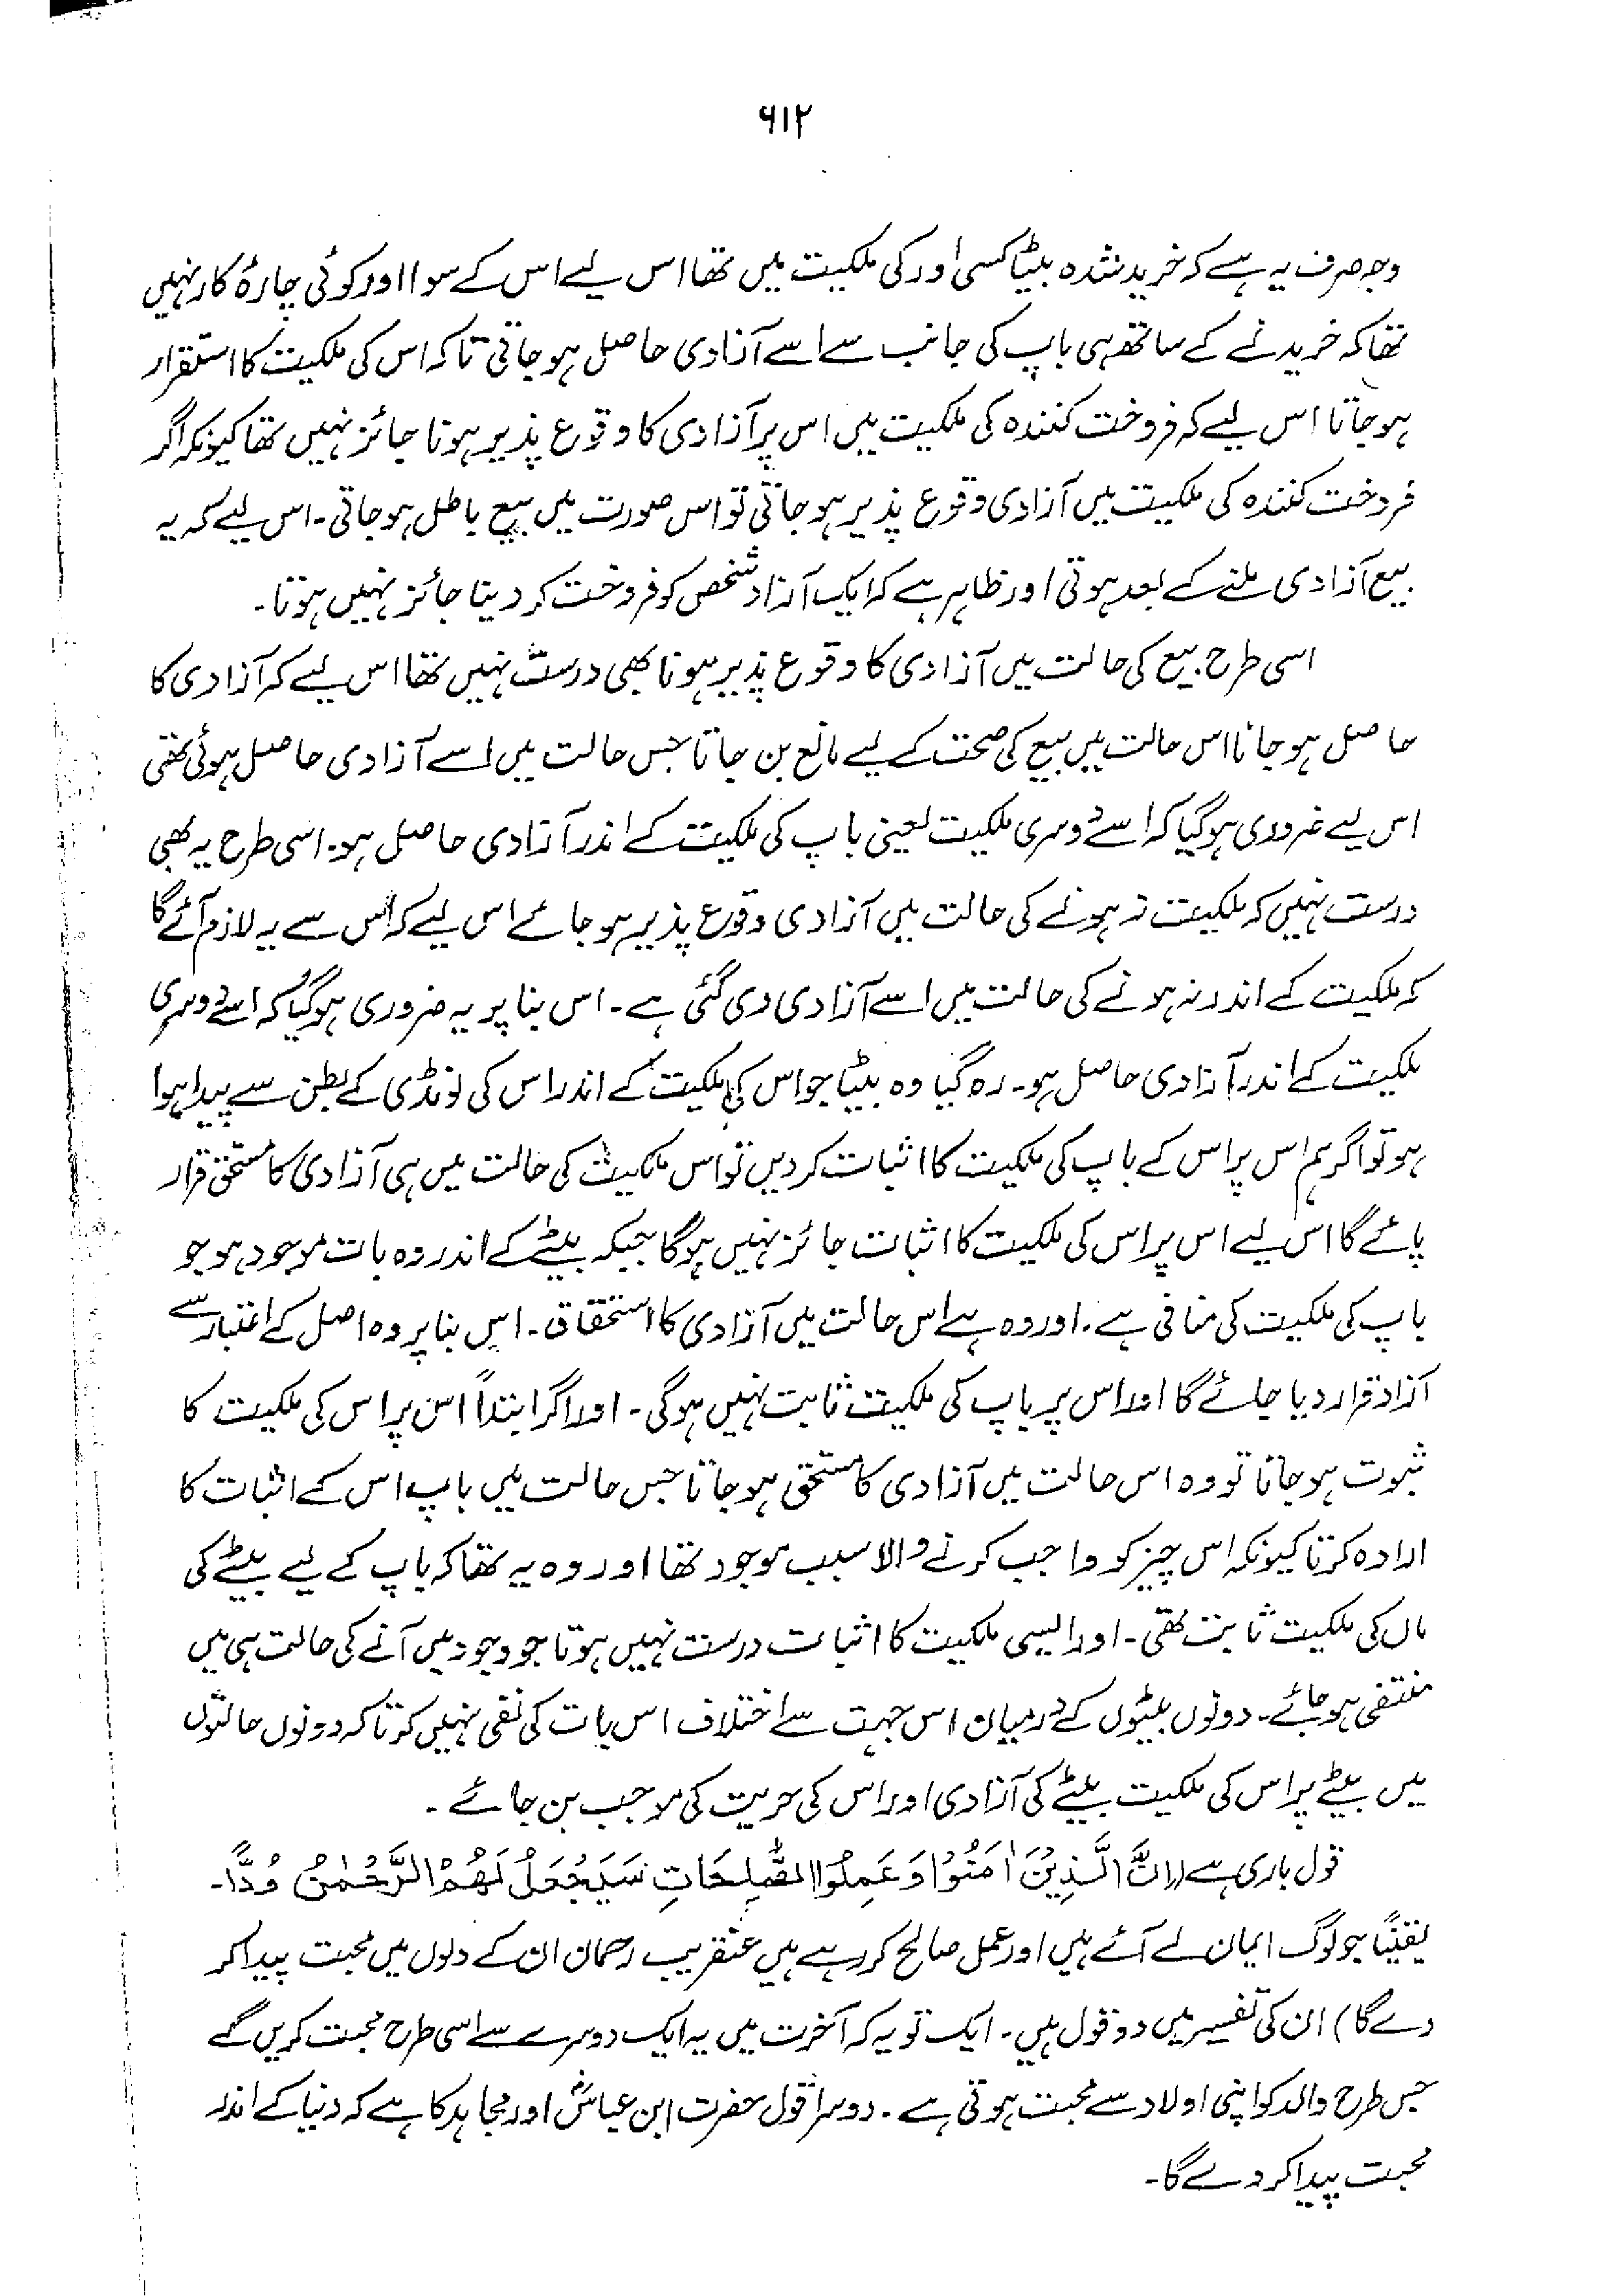 ۶۱۲
وجہ صرف یہ ہے کہ خرید شدہ بیٹا کسی اور کی ملکیت میں تھا اس لیے اس کے سوا اور کوئی چارۂ کار نہیں
تھا کہ خریدنے کے ساتھ ہی باپ کی جانب سے اسے آزادی حاصل ہو جاتی تاکہ اس کی ملکیت کا استقرار
ہو جاتا اس لیے کہ فروخت کنندہ کی ملکیت میں اس پر آزادی کا وقوع پذیر ہونا جائز نہیں تھا کیونکہ اگر
فروخت کنندہ کی ملکیت میں آزادی وقوع پذیر ہو جاتی تو اس صورت میں بیع باطل ہو جاتی۔ اس لیے کہ یہ
بیع آزادی ملنے کے بعد ہوتی اور ظاہر ہے کہ ایک آزاد شخص کو فروخت کر دینا جائز نہیں ہوتا۔
اسی طرح بیع کی حالت میں آزادی کا وقوع پذیر ہونا بھی درست نہیں تھا اس لیے کہ آزادی کا
حاصل ہو جانا اس حالت میں بیع کی صحت کے لیے مانع بن جاتا جس حالت میں اسے آزادی حاصل ہوئی تھی
اس لیے ضروری ہو گیا کہ اسے دوسری ملکیت یعنی باپ کی ملکیت کے اندر آزادی حاصل ہو۔ اسی طرح یہ بھی
درست نہیں کہ ملکیت نہ ہونے کی حالت میں آزادی وقوع پذیر ہو جائے اس لیے کہ اس سے یہ لازم آئے گا
کہ ملکیت کے اندر نہ ہونے کی حالت میں اسے آزادی دی گئی ہے۔ اس بنا پر یہ ضروری ہو گیا کہ اسے دوسری
ملکیت کے اندر آزادی حاصل ہو۔ رہ گیا وہ بیٹا جو اس کی ملکیت کے اندر اس کی لونڈی کے بطن سے پیدا ہوا
ہو تو اگر ہم اس پر اس کے باپ کی ملکیت کا اثبات کر دیں تو اس ملکیت کی حالت میں ہی آزادی کا مستحق قرار
پائے گا اس لیے اس پر اس کی ملکیت کا اثبات جائز نہیں ہوگا جبکہ بیٹے کے اندر وہ بات موجود ہو جو
باپ کی ملکیت کی منافی ہے۔ اور وہ ہے اس حالت میں آزادی کا استحقاق۔ اس بنا پر وہ اصل کے اعتبار سے
آزاد قرار دیا جائے گا اور اس پر باپ کی ملکیت ثابت نہیں ہوگی۔ اور اگر ابتداً اس پر اس کی ملکیت کا
ثبوت ہو جاتا تو وہ اس حالت میں آزادی کا مستحق ہو جاتا جس حالت میں باپ اس کے اثبات کا
ارادہ کرتا کیونکہ اس چیز کو واجب کرنے والا سبب موجود تھا اور وہ یہ تھا کہ باپ کے لیے بیٹے کی
ماں کی ملکیت ثابت تھی۔ اور ایسی ملکیت کا اثبات درست نہیں ہوتا جو وجود میں آنے کی حالت ہی میں
منتفی ہو جائے۔ دونوں بیٹوں کے درمیان اس جہت سے اختلاف اس بات کی نفی نہیں کرتا کہ دونوں حالتوں
میں بیٹے پر اس کی ملکیت بیٹے کی آزادی اور اس کی حریت کی موجب بن جائے۔
قول باری ہے (اِنَّ الَّذِیْنَ اٰمَنُوْا وَعَمِلُوا الصّٰلِحَاتِ سَیَجْعَلُ لَھُمُ الرَّحْمٰنُ وُدًّا۔
یقیناً جو لوگ ایمان لے آئے ہیں اور عمل صالح کر رہے ہیں عنقریب رحمان ان کے دلوں میں محبت پیدا کر
دے گا) ان کی تفسیر میں دو قول ہیں۔ ایک تو یہ کہ آخرت میں یہ ایک دوسرے سے اسی طرح محبت کریں گے
جس طرح والد کو اپنی اولاد سے محبت ہوتی ہے۔ دوسرا قول حضرت ابن عباسؓ اور مجاہد کا ہے کہ دنیا کے اندر
محبت پیدا کر دے گا۔